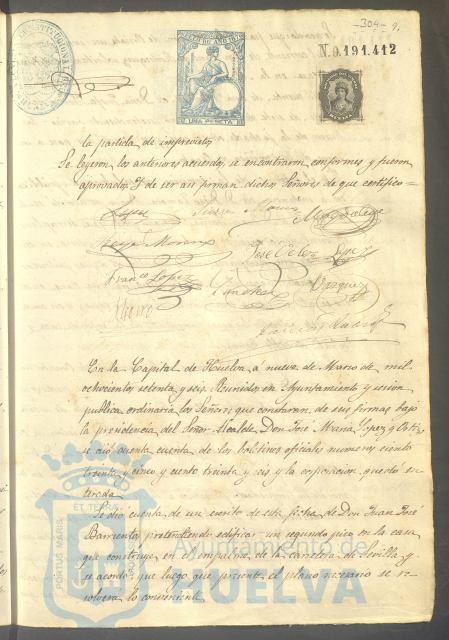 304
N.0.191.412
UNA PESETA
la partida de imprevistos
Se leyeron los anteriores acuerdos, se encontraron conformes y fueron
aprobados. Y de ser asi firman dichos Señores de que certifico=
Lopez
Franco. Lopez José Velez Lopez
Sanchez Vazquez
En la Capital de Huelva á nueve de Marzo de mil
ochocientos setenta y seis. Reunidos en Ayuntamiento y sesion
publica ordinaria los Señores que constaran de sus firmas bajo
la presidencia del Señor Alcalde Don José Maria Lopez y Ortiz,
se dió cuenta de los boletines oficiales numeros ciento
treinta y cinco y ciento treinta y seis y la corporacion quedó en
terada.
Se dió cuenta de un escrito de esta fecha de Don Juan José
Barrientos pretendiendo edificar un segundo piso en la casa
que construye en el empalme de la carretera de Sevilla y
se acordó que luego que presente el plano necesario se re
solvera lo conveniente.
PORTUS MARIS ET TERRAE
Ayuntamiento de
HUELVA